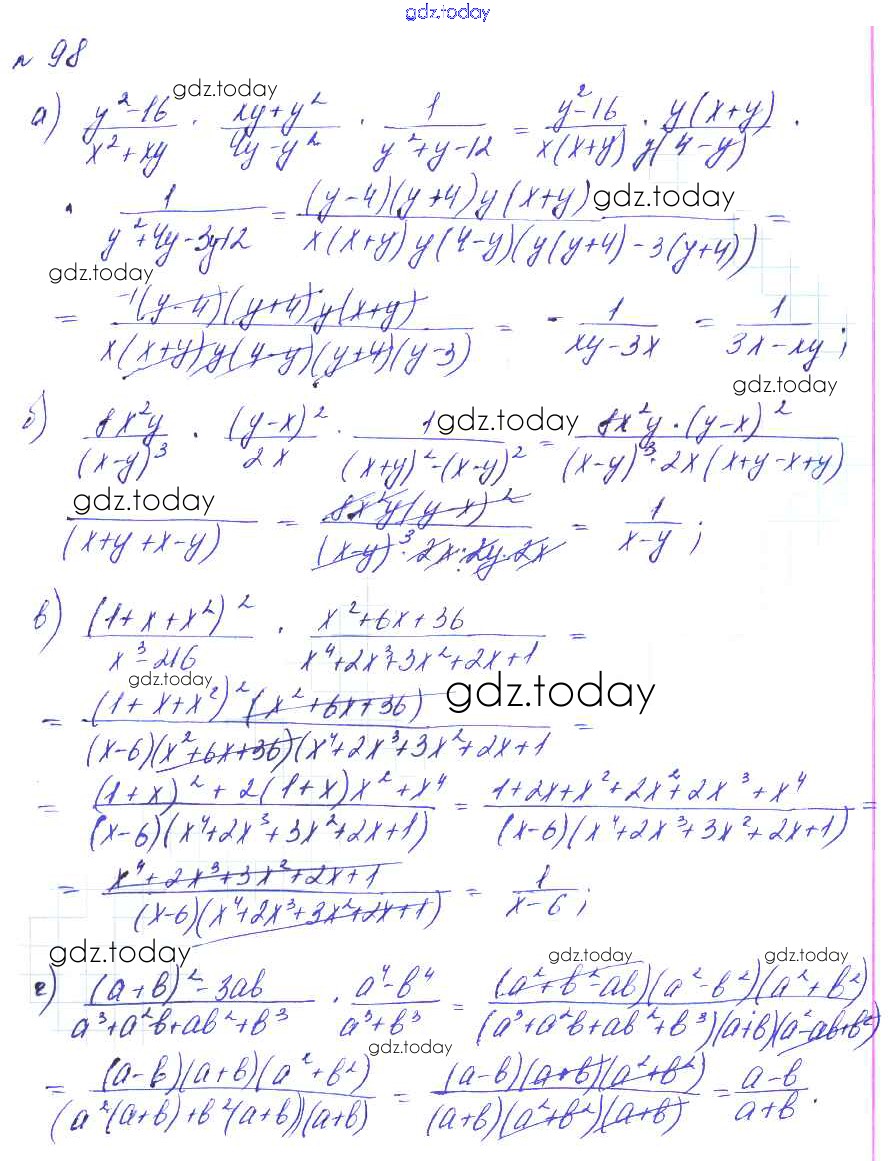 gdz.today
№ 98
gdz.today
а) (y²-16)/(x²+xy) · (xy+y²)/(4y-y²) · 1/(y²+y-12) = (y²-16)/(x(x+y)) · (y(x+y))/(y(4-y)) ·
· 1/(y²+4y-3y-12) = ((y-4)(y+4)y(x+y))/(x(x+y)y(4-y)(y(y+4)-3(y+4))) =
gdz.today
gdz.today
= (-1(y-4)(y+4)y(x+y))/(x(x+y)y(y-y)(y+4)(y-3)) = - 1/(xy-3x) = 1/(3x-xy);
gdz.today
б) (8x²y)/((x-y)³) · ((y-x)²)/(2x) · 1/((x+y)²-(x-y)²) = (8x²y·(y-x)²)/((x-y)³·2x(x+y-x+y)
gdz.today
gdz.today
/((x+y+x-y) = (8x²y(y-x)²)/((x-y)³·2x·2y·2x) = 1/(x-y);
в) ((1+x+x²)²)/(x³-216) · (x²+6x+36)/(x⁴+2x³+3x²+2x+1) =
gdz.today
gdz.today
= ((1+x+x²)²(x²+6x+36))/((x-6)(x²+6x+36)(x⁴+2x³+3x²+2x+1) =
= ((1+x)²+2(1+x)x²+x⁴)/((x-6)(x⁴+2x³+3x²+2x+1)) = (1+2x+x²+2x²+2x³+x⁴)/((x-6)(x⁴+2x³+3x²+2x+1)) =
= (x⁴+2x³+3x²+2x+1)/((x-6)(x⁴+2x³+3x²+2x+1)) = 1/(x-6);
gdz.today
gdz.today
gdz.today
г) ((a+b)²-3ab)/(a³+a²b+ab²+b³) · (a⁴-b⁴)/(a³+b³) = ((a²+b²-ab)(a²-b²)(a²+b²))/((a³+a²b+ab²+b³)(a+b)(a²-ab+b²))
gdz.today
= ((a-b)(a+b)(a²+b²))/((a²(a+b)+b²(a+b))(a+b)) = ((a-b)(a+b)(a²+b²))/((a+b)(a²+b²)(a+b)) = (a-b)/(a+b).